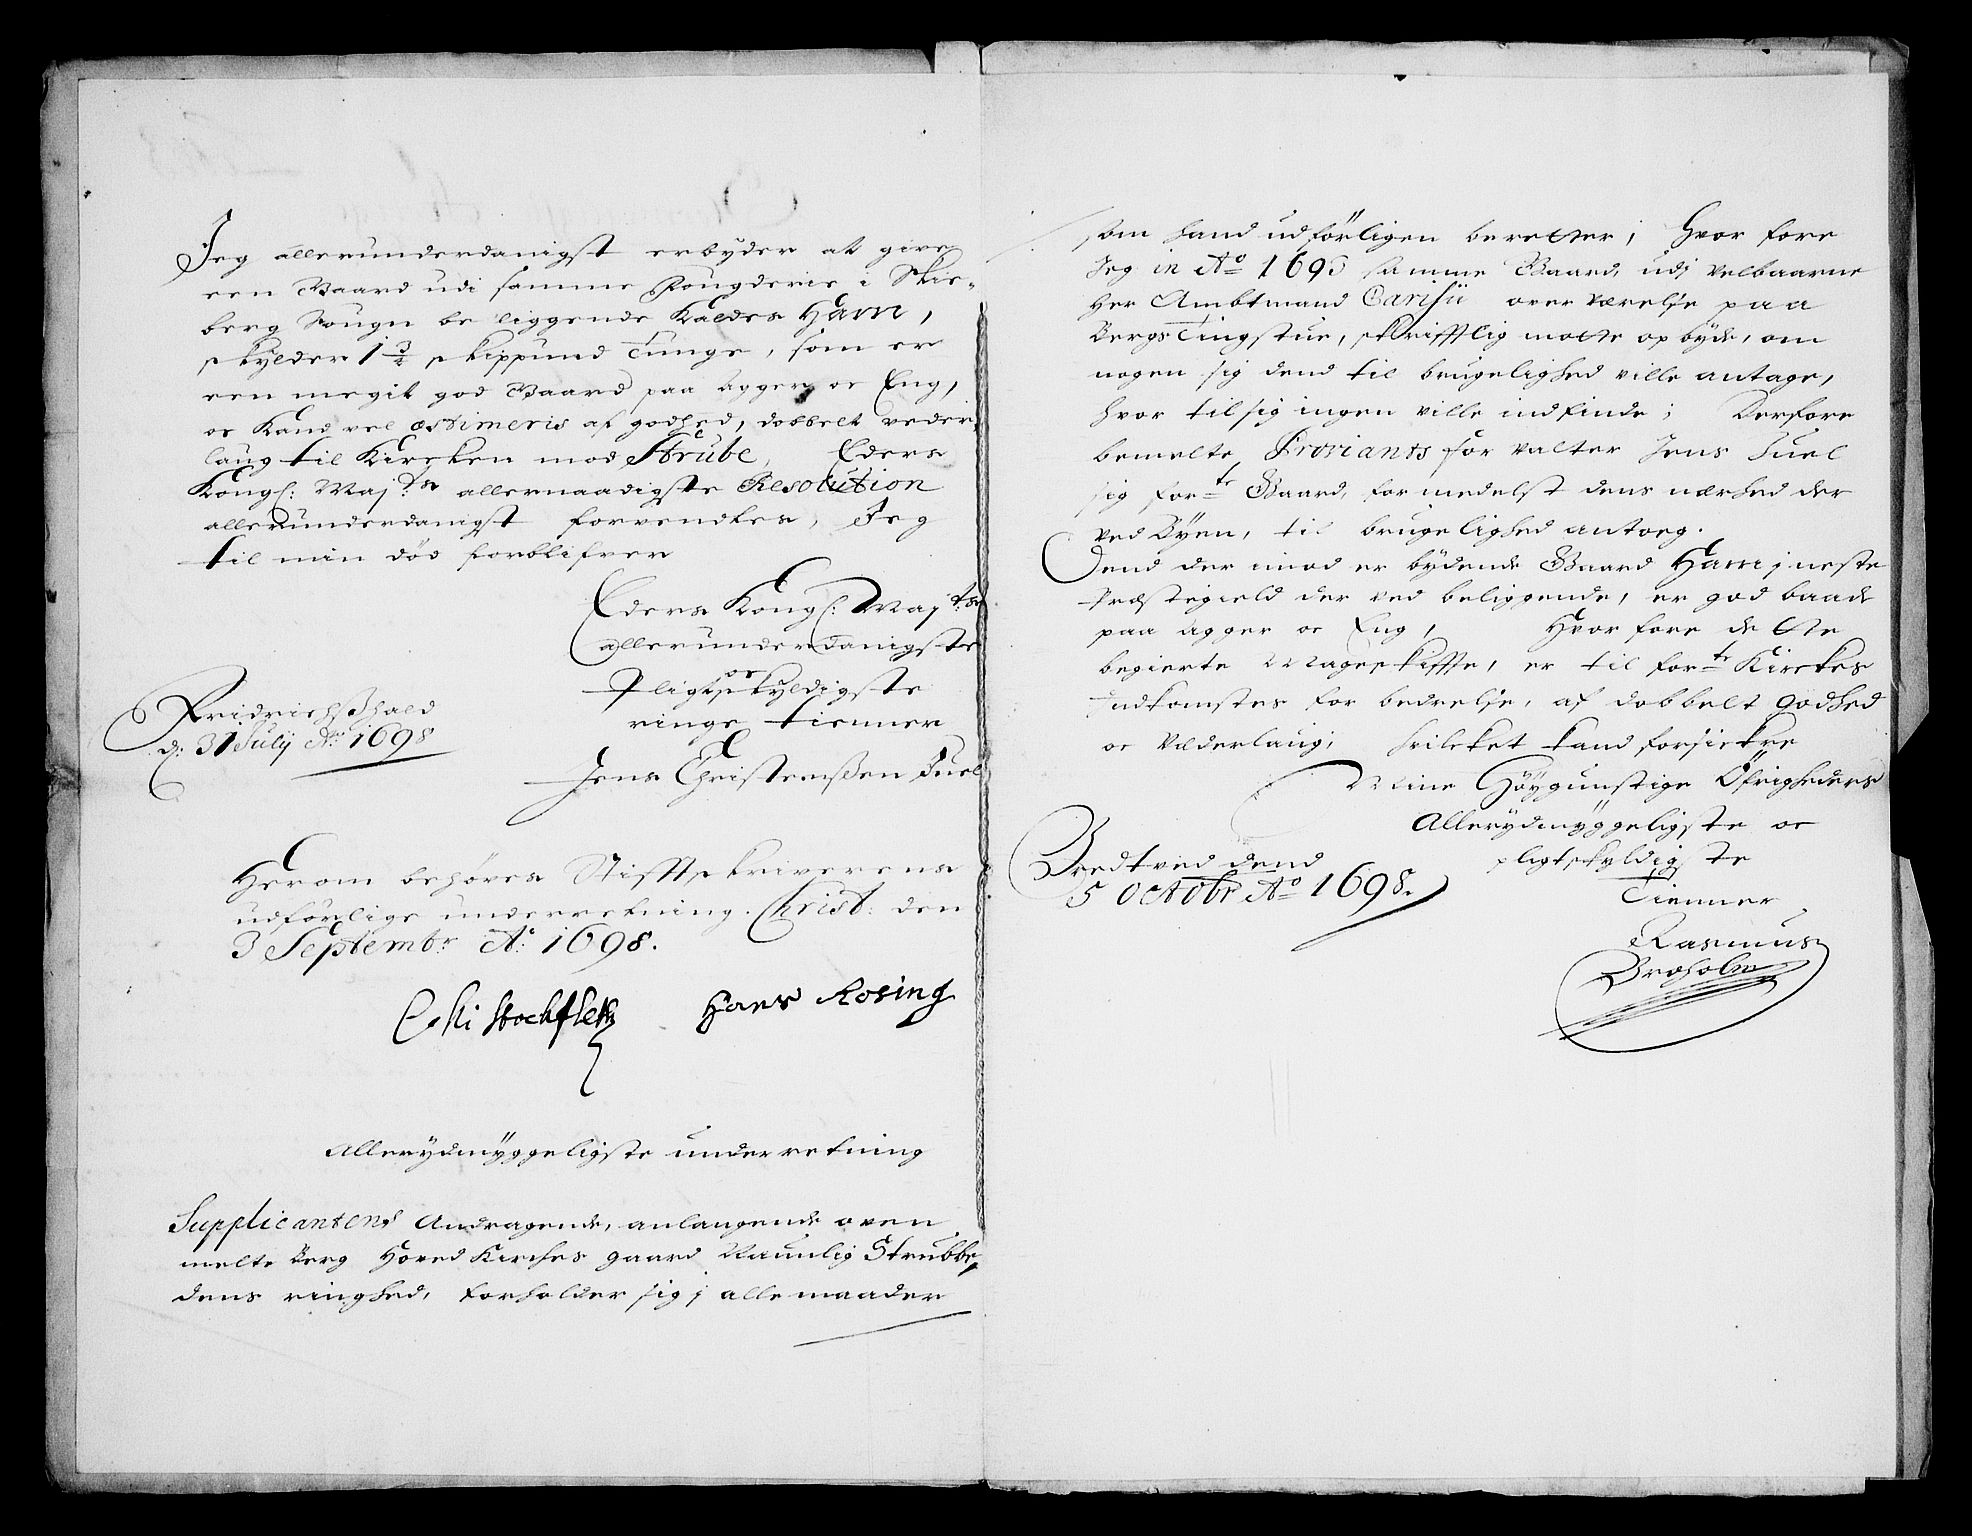 Jeg allerunderdanigst erbyder at give
een Gaard udi samme Fougderie i Skie-
berg Sougn beliggende Kaldes Ham,
skylder 1 3/4 skippund Tunge, som er
een megit god Gaard paa Agger oc Eng,
oc Kand vel æstimeris af godhed, dobbelt veder
laug til Kircken mod Strube, Eders
Kongl: Maj:ts allernaadigste Resolution
allerunderdanigst forventter, Jeg
til min død forblifver
Eders Kongl: Maj:ts
allerunderdanigste
Pligt oc skyldigste
ringe tienner
Fridrichshald
d: 31 July Ao 1698
Jens Christenßen Juel
Herom behøves Stiftskriverens
udførlige underretning. Christ: den
3 Septembr Ao: 1698.
Stockfleth Hans Rosing
Allerydmyggeligste underretning
Supplicantens Andragende, anlangende oven
melte Berg Hoved Kirches gaard Naunlig Strubbe,
dens ringhed, forholder sig j alle maader
som hand udførligen beretter; Hvor fore
Jeg in Ao 1695 samme Gaard, udj velbaarne
Her Ambtmand Carisii overværelse paa
Bergs Tingstue, skrifftlig motte opbyde, om
nogen sig dend til brugelighed ville antage,
hvor til sig ingen ville indfinde; Derfore
bemelte Proviants forvalter Jens Juel
sig forte Gaard, formedelst dens nærhed der
ved Byen, til brugelighed antoeg.
Dend der imod erbydende Gaard Ham j neste
Præstegield der ved beliggende, er god baade
paa Agger oc Eng, Hvor fore dette
begierte Mageskiffte, er til forte Kirckes
Indkomstes forbedrelse, af dobbelt godhed
oc Vederlaug; hvilcket kand forsickre
Mine Høygunstige Øfrigheders
Allerydmyggeligste oc
pligtskyldigste
Tienner
Bredtved dend
5 Octobr Ao 1698.
Rasmus